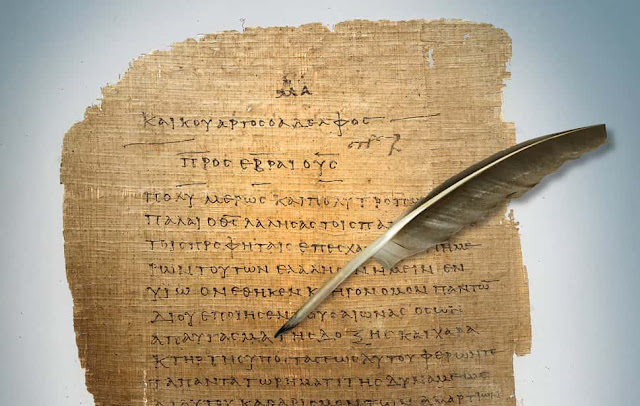 ΚΑΙ ΚΟΥΑΡΤΟϹ Ο ΑΔΕΛΦΟϹ
ΠΡΟϹ ΕΒΡΑΙΟΥϹ
ΠΟΛΥΜΕΡΩϹ ΚΑΙ ΠΟΛΥΤΡΟΠΩ
ΠΑΛΑΙ Ο ΘϹ ΛΑΛΗϹΑϹ ΤΟΙϹ
ΤΟΙϹ ΠΡΟΦΗΤΑΙϹ ΕΠ ΕϹΧΑ ΗΜΕ
ΡΩΝ ΤΟΥΤΩΝ ΕΛΑΛΗϹΕΝ ΗΜΕΙΝ ΕΝ
ΥΙΩ ΟΝ ΕΘΗΚΕΝ ΚΛΗΡΟΝΟΜΟΝ ΠΑΝΤΩ
ΔΙ ΟΥ ΕΠΟΙΗϹΕΝ ΤΟΥϹ ΑΙΩΝΑϹ ΟϹ ΩΝ
ΑΠΑΥΓΑϹΜΑ ΤΗϹ ΔΟΞΗϹ ΚΑΙ ΧΑΡΑ
ΚΤΗΡ ΤΗϹ ΥΠΟϹΤΑϹΕΩϹ ΑΥΤΟΥ ΦΕΡΩΝ ΤΕ
ΤΑ ΠΑΝΤΑ ΤΩ ΡΗΜΑΤΙ ΤΗϹ ΔΥΝΑΜΕΩϹ
ΔΙ ΑΥΤΟΥ ΚΑΘΑΡΙϹΜΟΝ ΤΩΝ ΑΜΑΡΤΙΩΝ